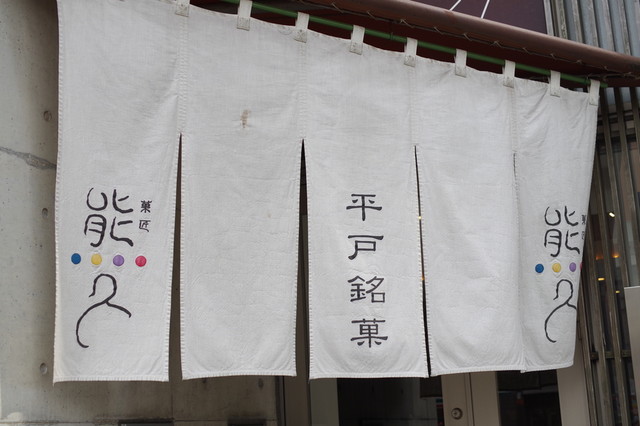 菓匠
能久
平戸銘菓
菓匠
能久